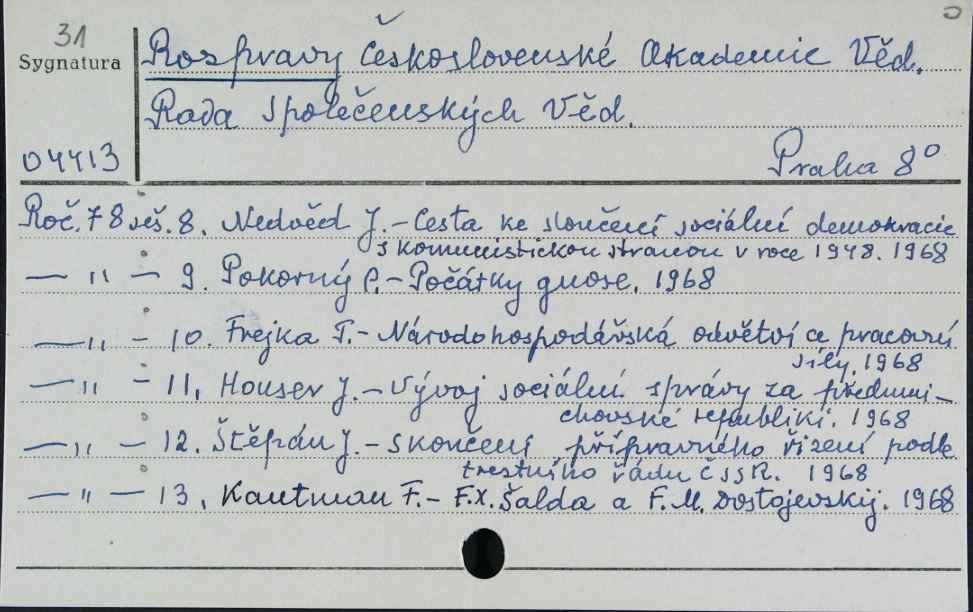 31
Sygnatura
04413
Rozpravy Československé Akademie Věd.
Rada Společenských Věd.
Praha 8°
Roč. 78 seš. 8. Nedvěd J. - Cesta ke sloučení sociální demokracie
s komunistickou stranou v roce 1948. 1968
— " — 9. Pokorný P. - Počátky gnose. 1968
— " — 10. Frejka T. - Národohospodářská odvětví a pracovní
síly. 1968
— " — 11. Houser J. - Vývoj sociální správy za předmni-
chovské republiki. 1968
— " — 12. Štěpán J. - Skončení přípravného řízení podle
trestního řádu ČSSR. 1968
— " — 13. Kautman F. - F.X. Šalda a F.M. Dostojevskij. 1968